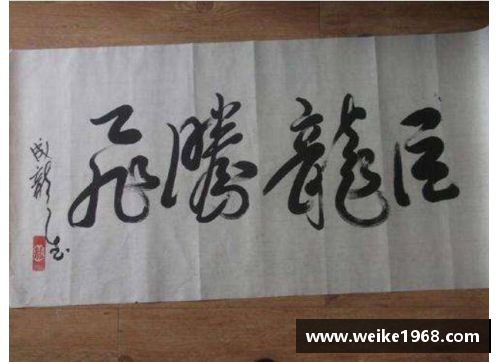 巨龍騰飛
成龍
www.weike1968.com